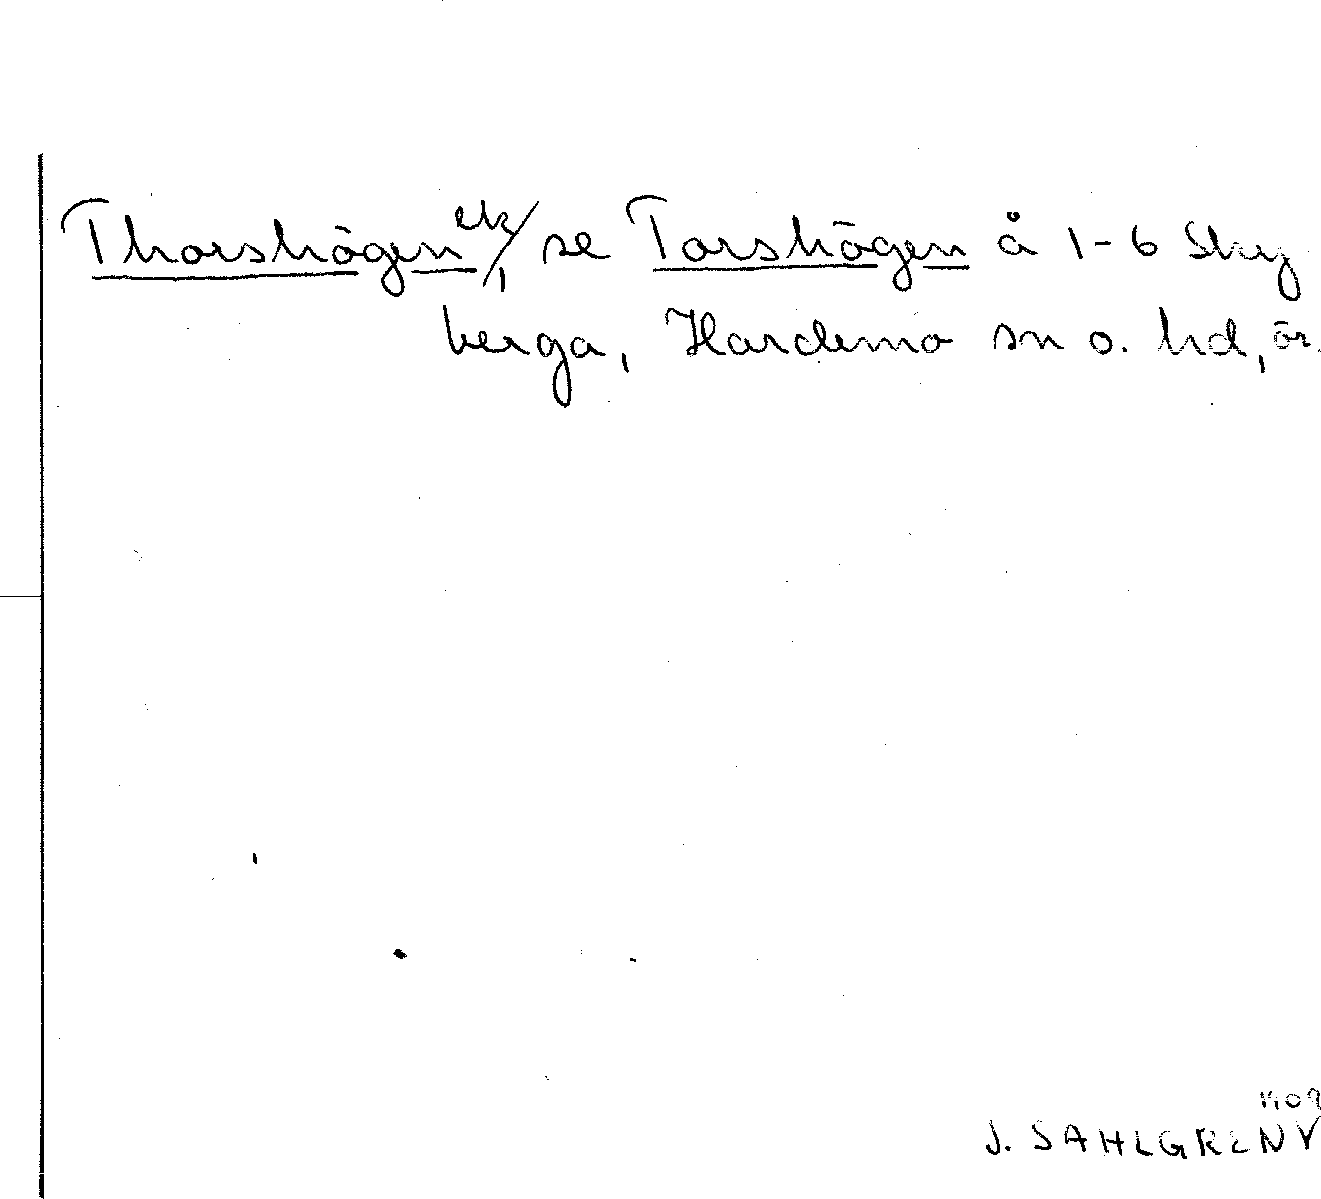 Thorshögen ek, se Torshögen å 1-6 Sky
berga, Hardemo sn o. hd, ör.
1909
J. SAHLGREN